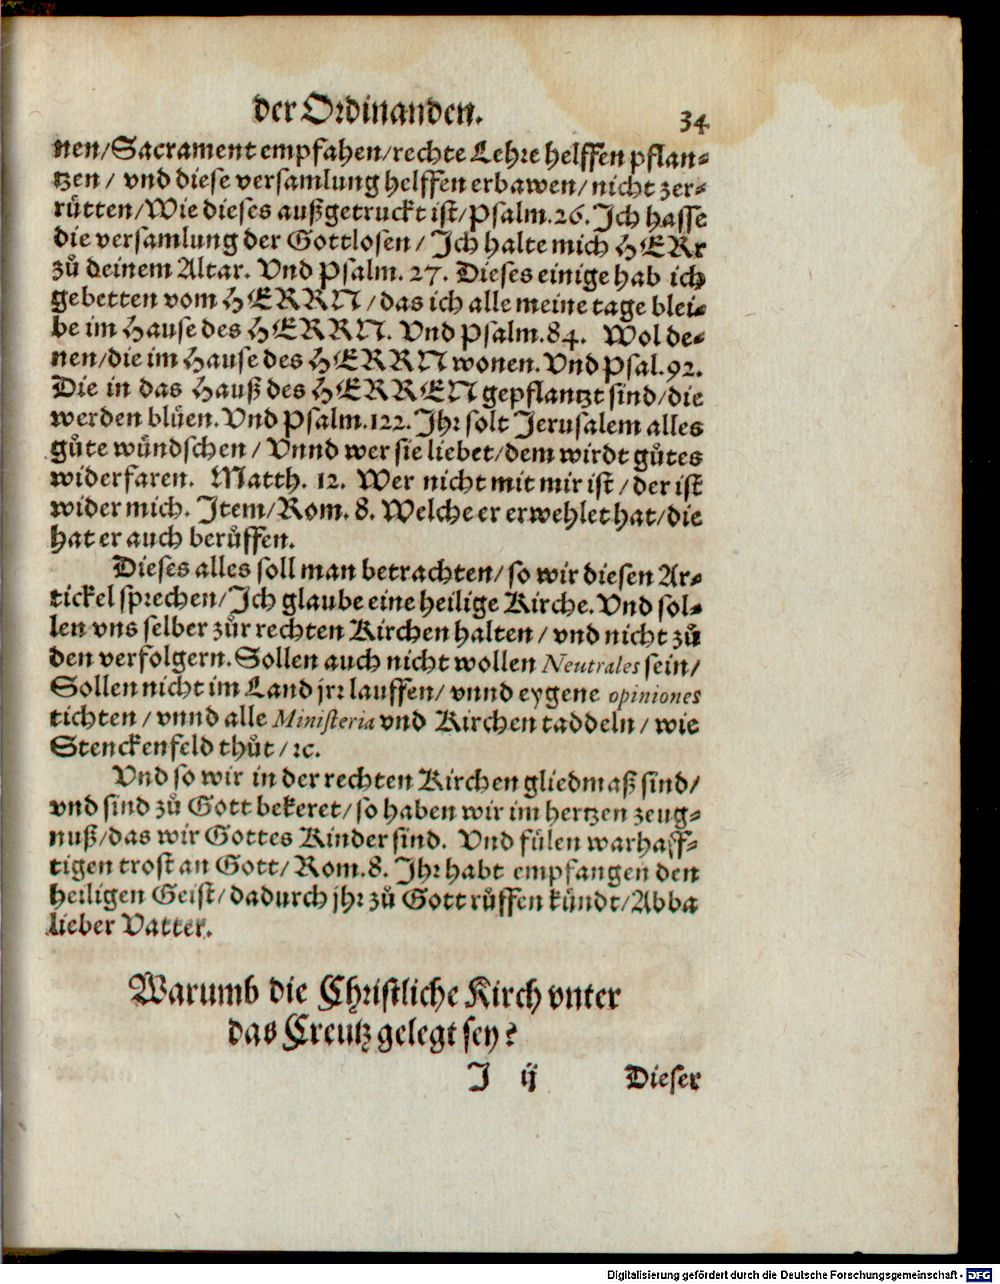 der Ordinanden. 34
nen/Sacrament empfahen/rechte Lehre helffen pflan-
tzen / vnd diese versamlung helffen erbawen/ nicht zer-
rütten/Wie dieses außgetruckt ist/Psalm.26.Ich hasse
die versamlung der Gottlosen / Ich halte mich HERr
zů deinem Altar. Vnd Psalm. 27. Dieses einige hab ich
gebetten vom HERRN /das ich alle meine tage blei-
be im Hause des HERRN. Vnd Psalm.84. Wol de-
nen/die im Hause des HERRN wonen. Vnd Psal.92.
Die in das Hauß des HERREN gepflantzt sind/die
werden blüen.Vnd Psalm.122.Ihr solt Jerusalem alles
gůte wündschen / Vnnd wer sie liebet/dem wirdt gůtes
widerfaren. Matth. 12. Wer nicht mit mir ist /der ist
wider mich. Item/Rom. 8. Welche er erwehlet hat/die
hat er auch berůffen.
Dieses alles soll man betrachten/so wir diesen Ar-
tickel sprechen/Ich glaube eine heilige Kirche.Vnd sol-
len vns selber zůr rechten Kirchen halten / vnd nicht zů
den verfolgern.Sollen auch nicht wollen Neutrales sein/
Sollen nicht im Land jrr lauffen/ vnnd eygene opiniones
tichten /vnnd alle Ministeria vnd Kirchen taddeln / wie
Stenckenfeld thůt /ꝛc.
Vnd so wir in der rechten Kirchen gliedmaß sind/
vnd sind zů Gott bekeret/so haben wir im hertzen zeug-
nuß/das wir Gottes Kinder sind. Vnd fülen warhaff-
tigen trost an Gott/ Rom.8. Ihr habt empfangen den
heiligen Geist/dadurch jhr zů Gott růffen kündt/Abba
lieber Vatter.
Warumb die Christliche Kirch vnter
das Creutz gelegt sey?
I ij Dieser
Digitalisierung gefördert durch die Deutsche Forschungsgemeinschaft - DFG